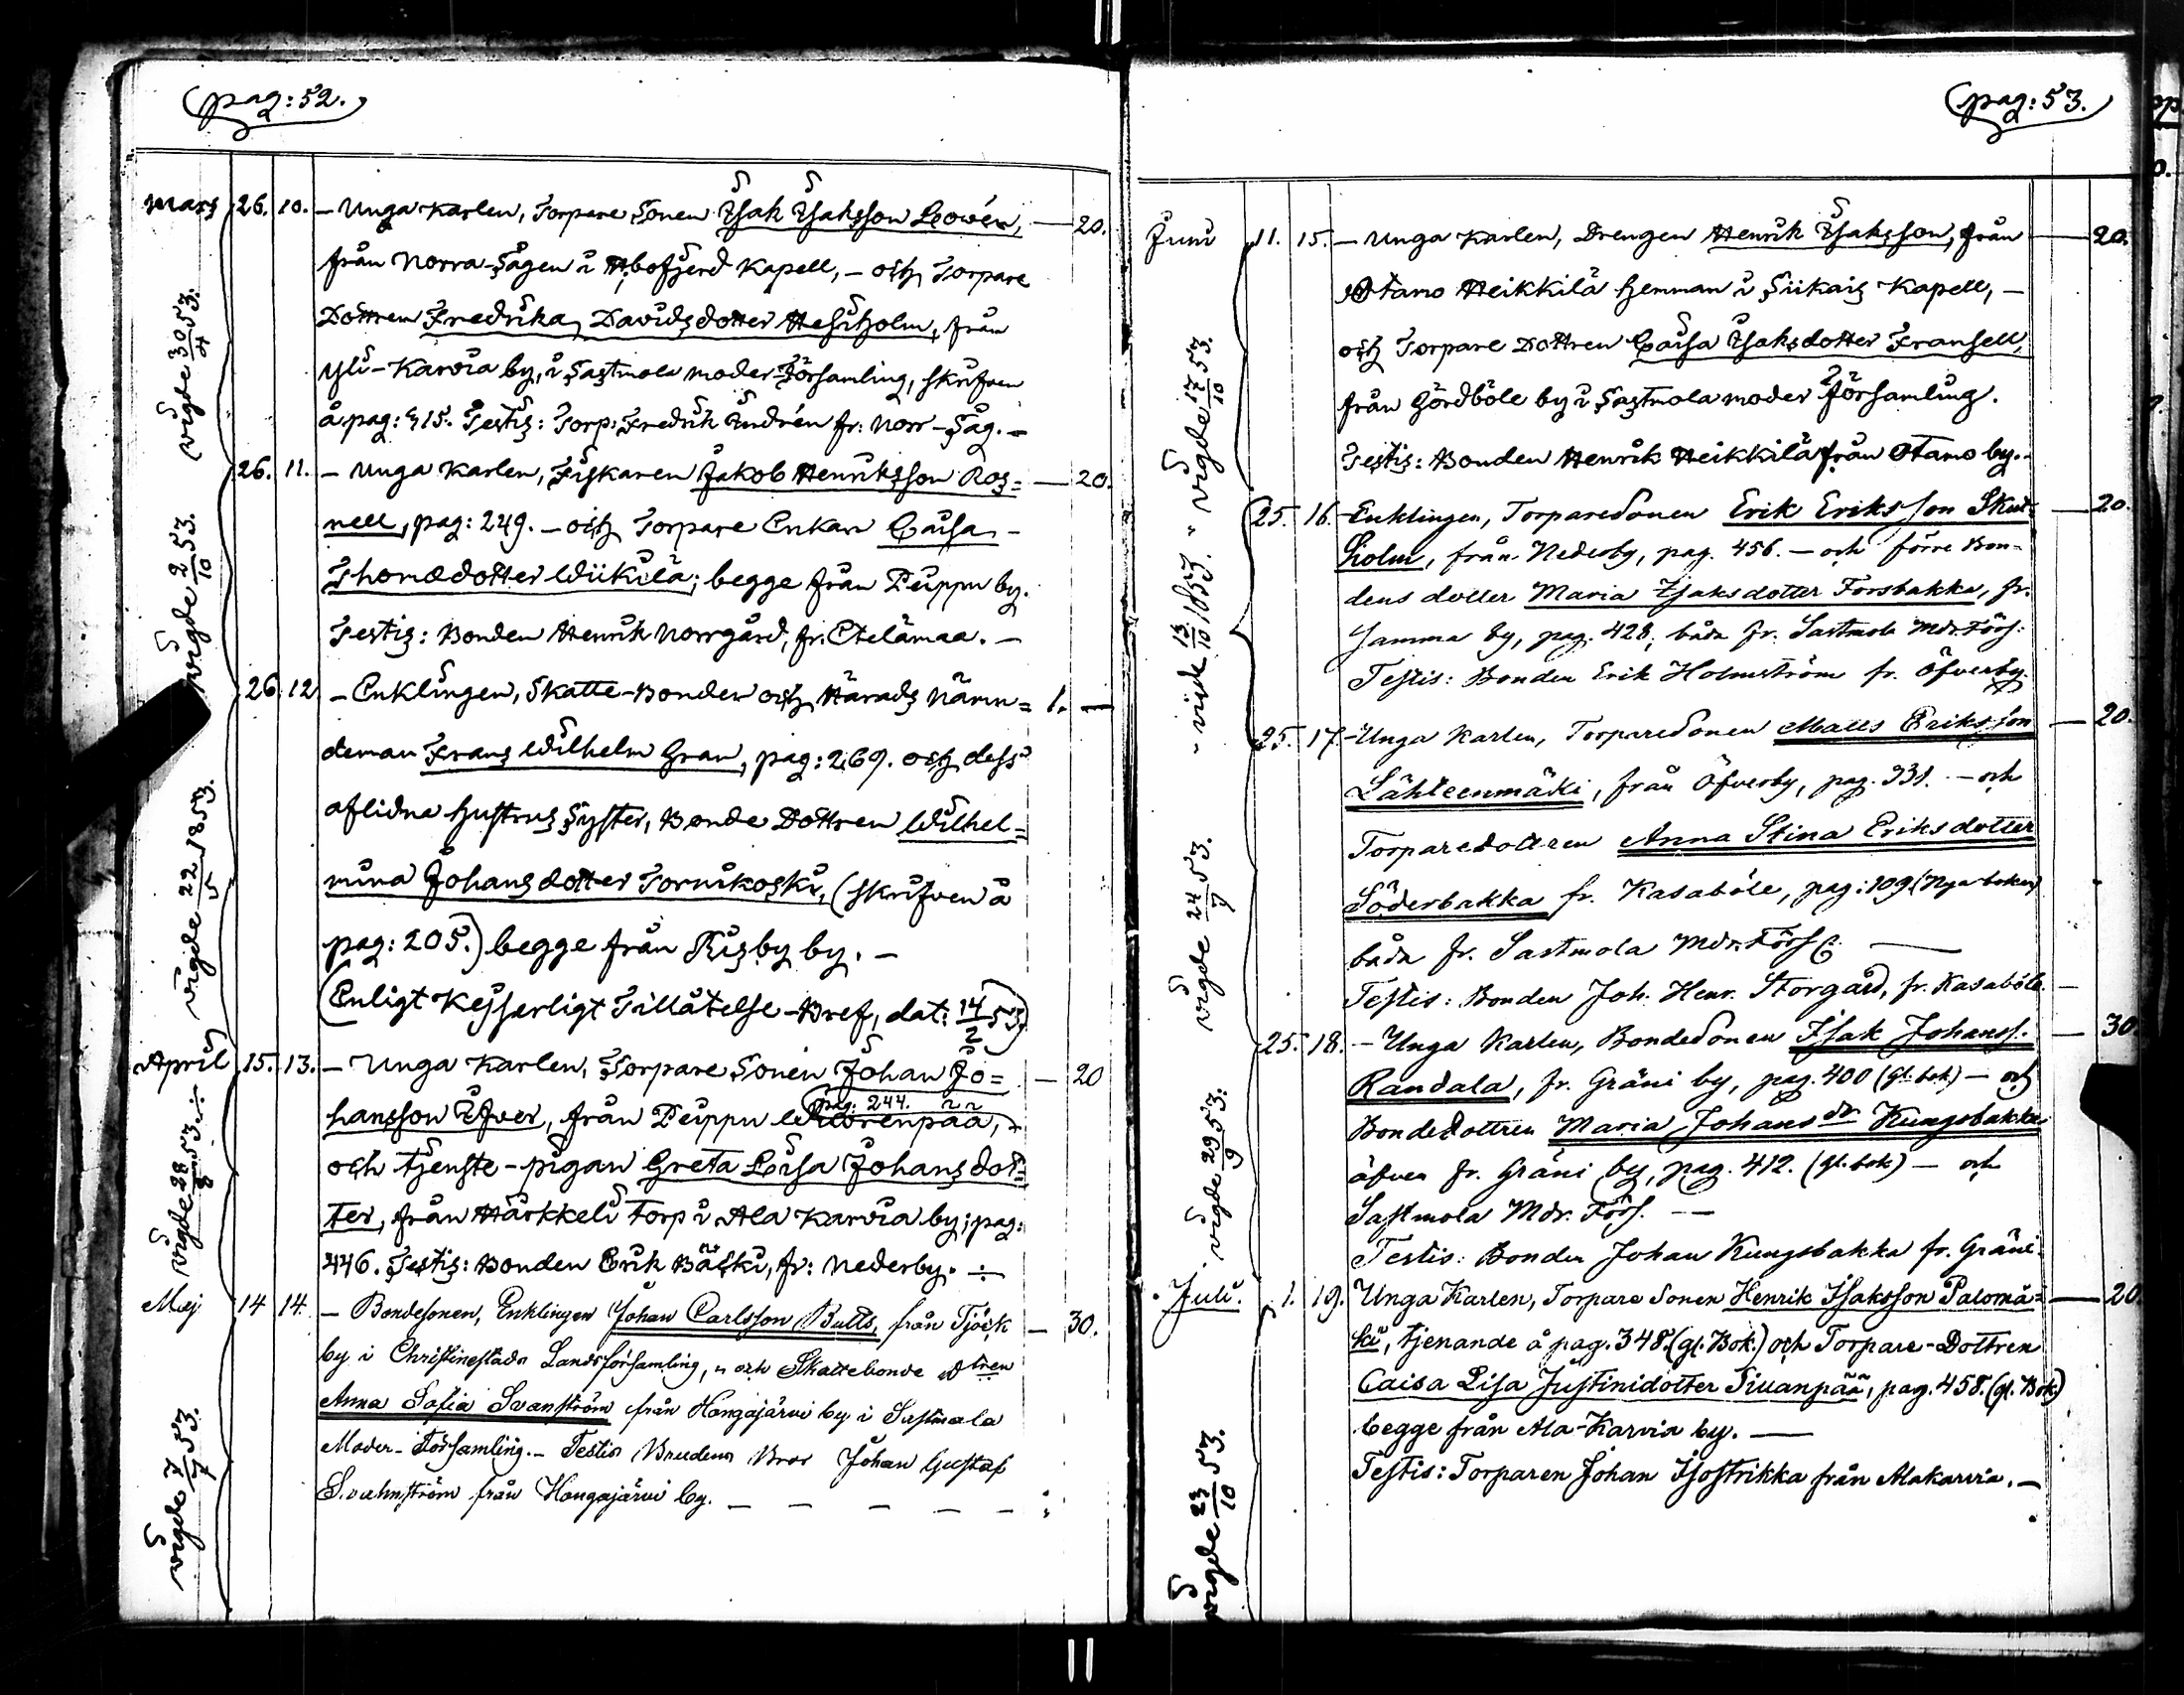 pag: 52.
Mars 26. 10. — Unga Karlen, Torpare Sonen Isak Isaksson Lowén, — 20.
från Norra-Sågen i Åbofjerd Kapell, — och Torpare
Dottren Fredrika Davidsdotter Hesiholm, från
Yli-Karvia by, i Sastmola moder Församling, skrifven
å pag: 415. Testis: Torp: Fredrik Andrén fr: Norr-Såg. —
vigde 30/4 53.
26. 11. — Unga Karlen, Fiskaren Jakob Henriksson Ros= — 20.
nell, pag: 249. — och Torpare Enkan Caisa
Thomædotter Wiikilä; begge från Peippu by.
Testis: Bonden Henrik Norrgård, fr. Etelämaa. —
vigde 2/10 53.
26. 12. — Enklingen, Skatte-Bonden och Härads Näm= 1. —
deman Frans Wilhelm Gran, pag: 269. och dess
aflidna hustrus Syster, Bonde Dottren Wilhel=
mina Johansdotter Tornikoski, (skrifven å
pag: 205.) begge från Risby by. —
(Enligt Kejserligt Tillåtelse-Bref, dat: 14/2 53)
vigde 22/5 1853.
April 15. 13. — Unga Karlen, Torpare Sonen Johan Jo= — 20
hansson Ifver, från Peippu
pag: 244.
och tjenste-pigan Greta Lisa Johansdot=
ter, från Härkkeli torp i Ala Karvia by; pag:
446. Testis: Bonden Erik Bäski, fr: Nederby. ÷
vigde 28/8 53.
Maj 14 14. — Bondesonen, Enklingen Johan Carlsson Butts, från Tjöck — 30.
by i Christinestads Landsförsamling, — och Skattebonde dtren
Anna Sofia Svanström från Hongajärvi by i Sastmola
Moder-Församling. — Testis Brudens Bror Johan Gustaf
Svahnström från Hongajärvi by. — — — — —
vigde 7/7 53.
pag: 53.
Juni 11. 15. — Unga Karlen, Drengen Henrik Isaksson, från — 20.
Otamo Heikkilä hemman i Siikais Kapell, —
och Torpare Dottren Caisa Isaksdotter Fransell,
från Gördböle by i Sastmola moder Församling.
Testis: Bonden Henrik Heikkilä från Otamo by. -
vigde 17/10 53.
25. 16. Enklingen, Torparesonen Erik Eriksson Skut= — 20.
holm, från Nederby, pag. 456. — och förre Bon-
dens dotter Maria Isaksdotter Forsbakka, fr.
samma by, pag. 428, båda fr. Sastmola Mdr. Förs:
Testis: Bonden Erik Holmström fr. Öfverby.
13/10 1853.
25. 17. Unga Karlen, Torparesonen Matts Eriksson — 20.
Lähteenmäki, från Öfverby, pag. 331. — och
Torparedottren Anna Stina Eriksdotter
Söderbakka fr. Kasaböle, pag: 109 (Nya boken)
båda fr. Sastmola Mdr. Förs. —
Testis: Bonden Joh. Henr. Storgård, fr. Kasaböle. —
vigde 24/7 53.
25. 18. — Unga Karlen, Bondesonen Isak Johanss. — 30
Randala, fr. Gräni by, pag. 400 (gl. bok) — och
Bondedottren Maria Johans dr Kungsbakka
äfven fr. Gräni by, pag. 412. (gl. bok) — och
Sastmola Mdr. Förs. — —
Testis: Bonden Johan Kungsbakka fr. Gräni.
vigde 29/9 53.
Juli. 1. 19. Unga Karlen, Torpare Sonen Henrik Isaksson Palomä= — 20
ki, tjenande å pag. 348. (gl. Bok.) och Torpare-Dottren
Caisa Lisa Justinidotter Siuanpää, pag. 458. (gl. Bok)
begge från Ala-Karvia by. —
Testis: Torparen Johan Isostrikka från Alakarvia. —
vigde 23/10 53.